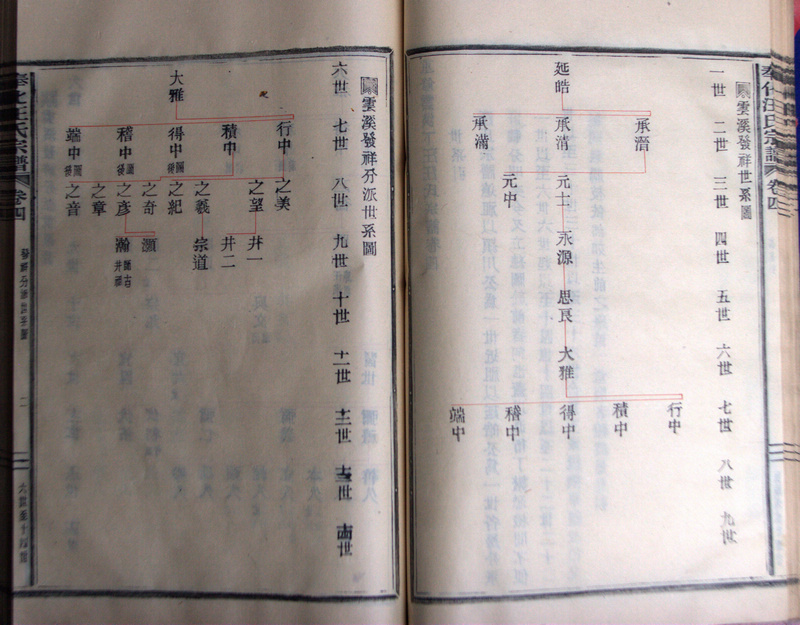 奉化汪氏宗譜 卷四
雲溪發祥世系圖
一世 二世 三世 四世 五世 六世 七世 八世 九世
延皓
承濳 承清 承滿
元士 元中
永源
思良
大雅
行中 積中 得中 稽中 端中
雲溪發祥分派世系圖
六世 七世 八世 九世 十世 十一世 十二世 十三世 十四世
大雅
行中 積中 得中 稽中 端中
之美 之望 之羲 之紀 之奇 之彥 之章 之音
井一 井二 宗道 灝 瀚
奉化汪氏宗譜 卷四